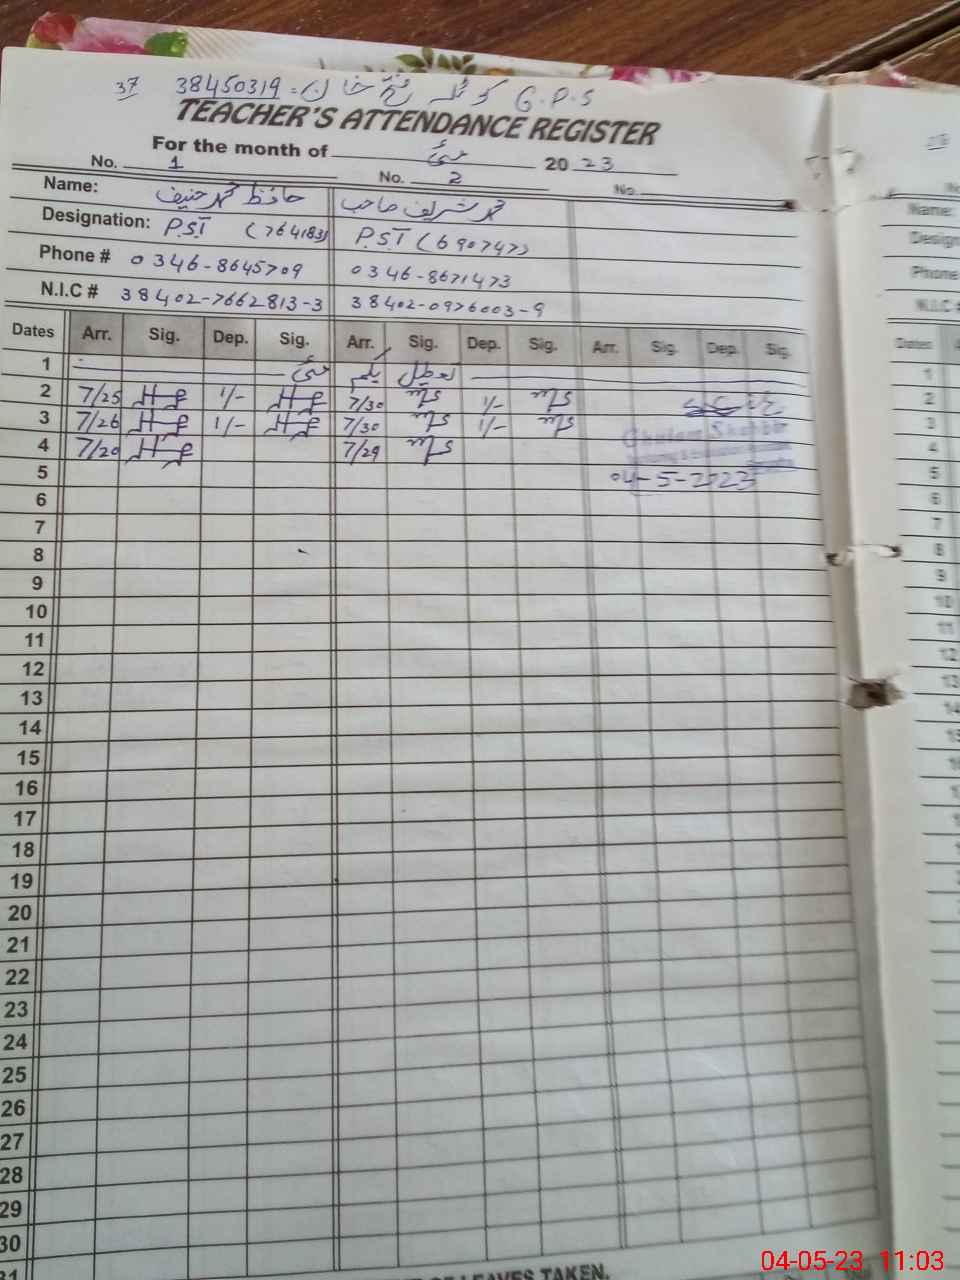 37 38450319 - کوٹلہ فتح خان G.P.S
TEACHER'S ATTENDANCE REGISTER
For the month of مئی 2023
No. 1 No. 2 No.
Name: حافظ محمد حنیف محمد شریف صاحب
Designation: P.ST (764183) P.ST (690747)
Phone # 0346-8645709 0346-8671473
N.I.C # 38402-7662813-3 38402-0976003-9
Dates Arr. Sig. Dep. Sig. Arr. Sig. Dep. Sig. Arr. Sig. Dep. Sig.
1 تعطیل یکم مئی
2 7/25 1/- 7/30 1/-
3 7/26 1/- 7/30 1/-
Ghulam Shabbir
4 7/20 7/29
5 04-5-2023
6
7
8
9
10
11
12
13
14
15
16
17
18
19
20
21
22
23
24
25
26
27
28
29
30
31
OF LEAVES TAKEN.
Name:
Design
Phone
N.I.C #
Dates
1
2
3
4
5
6
7
8
9
10
11
12
13
14
04-05-23 11:03